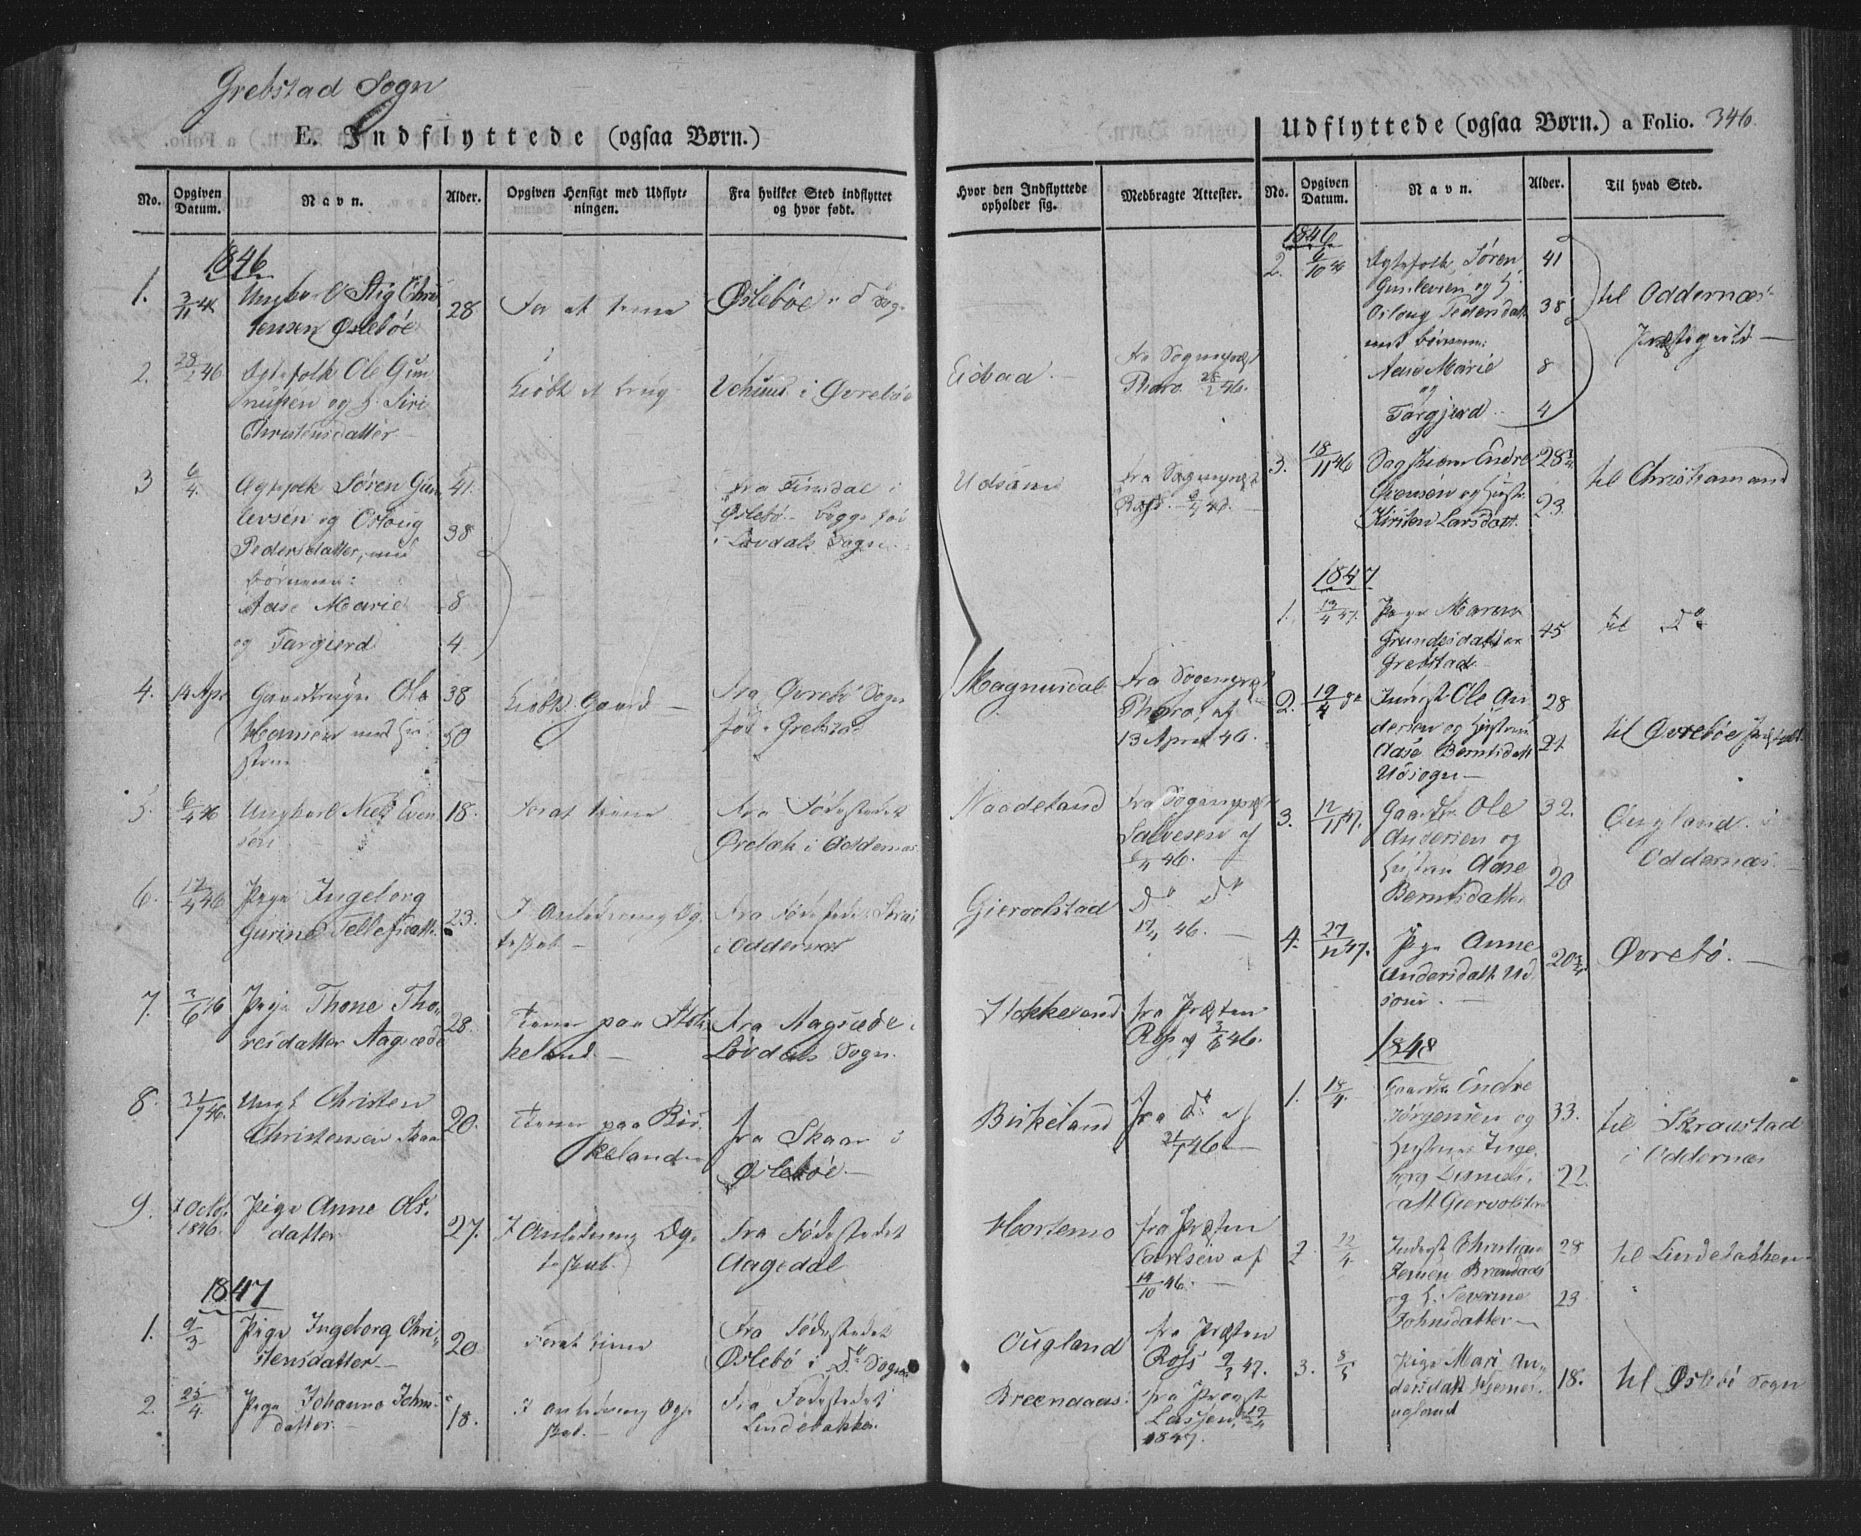 Grebstad Sogn
E. Indflyttede (ogsaa Børn.)
No.
Opgiven Datum.
Navn.
Alder.
Opgiven Hensigt med Udflyt-
ningen.
Fra hvilket Sted indflyttet
og hvor født.
Hvor den Indflyttede
opholder sig.
Medbragte Attester.
1846
1. Ungkarl Stig Chri
stensen Øslebøe 28 For at tiene Øslebøe
2. 28/2 46 Ægtefolk Ole Gun
nufsen og H. Siri
Christensdatter
Kiøbt et brug i Øvrebøe
Eidsaa. fra Sognepræst
Tharo 28/2 46.
3 6/4. Ægtefolk Søren Gun 41.
levsen og Osloug 38
Pedersdatter, med
børnene:
Aase Marie 8
og Targierd 4.
fra Finsdal i
Øslebø. begge fød
i Løvdals Sogn.
fra Sognepræst
Ross
4. 14 Apr Gaardbruger Ole 38
Hansen med Hu 50
strue
Kiøbt Gaard
fra Øvrebø Sogn
fød i Grebstad
Magnusdal fra Sognepræst
Tharo, af
13 April 46.
5. 6/4 46 Ungkarl Niels Even 18.
sen
For at tiene
fra Fødestedet
i Oddernæs
Naadeland fra Sognepræst
Salvesen af
6/4 46.
6. 17/4 46 Pige Ingeborg
Gurine Tellefsdatter 23.
I Anledning Æg-
teskab
fra Fødestedet
i Oddernæs
Giervolstad Do Do
17/4 46.
7. 3/6 46 Pige Thone Tho-
resdatter Aagsæde 28.
tiener paa Stok-
keland.
fra Aagsæde i
Løvdals Sogn.
Stokkeland fra Præsten
Ross af 3/6 46.
8. 21/7 46. Ungk Christen
Christensen Skaar 20.
tiener paa Bir-
keland
fra Skaar i
Øslebøe
Birkeland fra Do af
21/7 46
9. 7 Octbr
1846. Pige Anne Ols-
datter 27.
I Anledning Æg-
teskab.
Fra Fødestedet
Aagedal
Hortemo fra Præsten
Carlsen af
14/10 46.
1847
1. 9/3 Pige Ingeborg Chri-
stensdatter 20
For at tiene
Fra Fødestedet
Øslebø i Do Sogn
Ougland fra Præsten
Ross 9/3 47.
2. 25/4 Pige Johanna Johns
datter 18.
I anledning Ægte
skab.
Fra Fødestedet
Lindebakken
Breendaas fra Provst
Lassen, 19/4
1847.
Udflyttede (ogsaa Børn.) a Folio. 346.
No.
Opgiven
Datum.
Navn.
Alder.
Til hvad Sted.
1846
2. 6/10 46 Ægtefolk, Søren 41
Gunlevsen og H.
Osloug Pedersdatt 38
med børnene:
Aase Marie 8
og
Targjerd 4
til Oddernæs
Præstegield
3. 18/11 46 Endre 28
og Hustr
Kirsten Larsdatt. 23.
til Christiansand
1847
1. 13/4 47. Pige Maren
Gundersdatter 45
Grebstad
til Do
2. 19/4 Inderst Ole An 28
dersen og Hustrue
Aase Berntsdatt 21
Udsogn
til Øvrebøe
3. 12/11 47. Gaardbr Ole 32.
Andersen og
Hustru Aase 20
Berntsdatter
Ougland i
Oddernæs
4. 27/11 47. Pige Anne
Andersdatt. Ud
sone. 20 3/4
Øvrebø.
1848
1. 18/4. Gaardbr Endre
Jørgensen og 33.
Hustrue Inge-
borg 22
Giervolsta
til Skraastad
i Oddernæs
2 12/4 Inderst Christian 28
Jensen Breendaas
og H. Severine 23
Johnsdatter
til Lindebakken
3. 8/5 Pige Mari An-
dersdatt Hjernes- 18.
ugland
til Øslebø Sogn